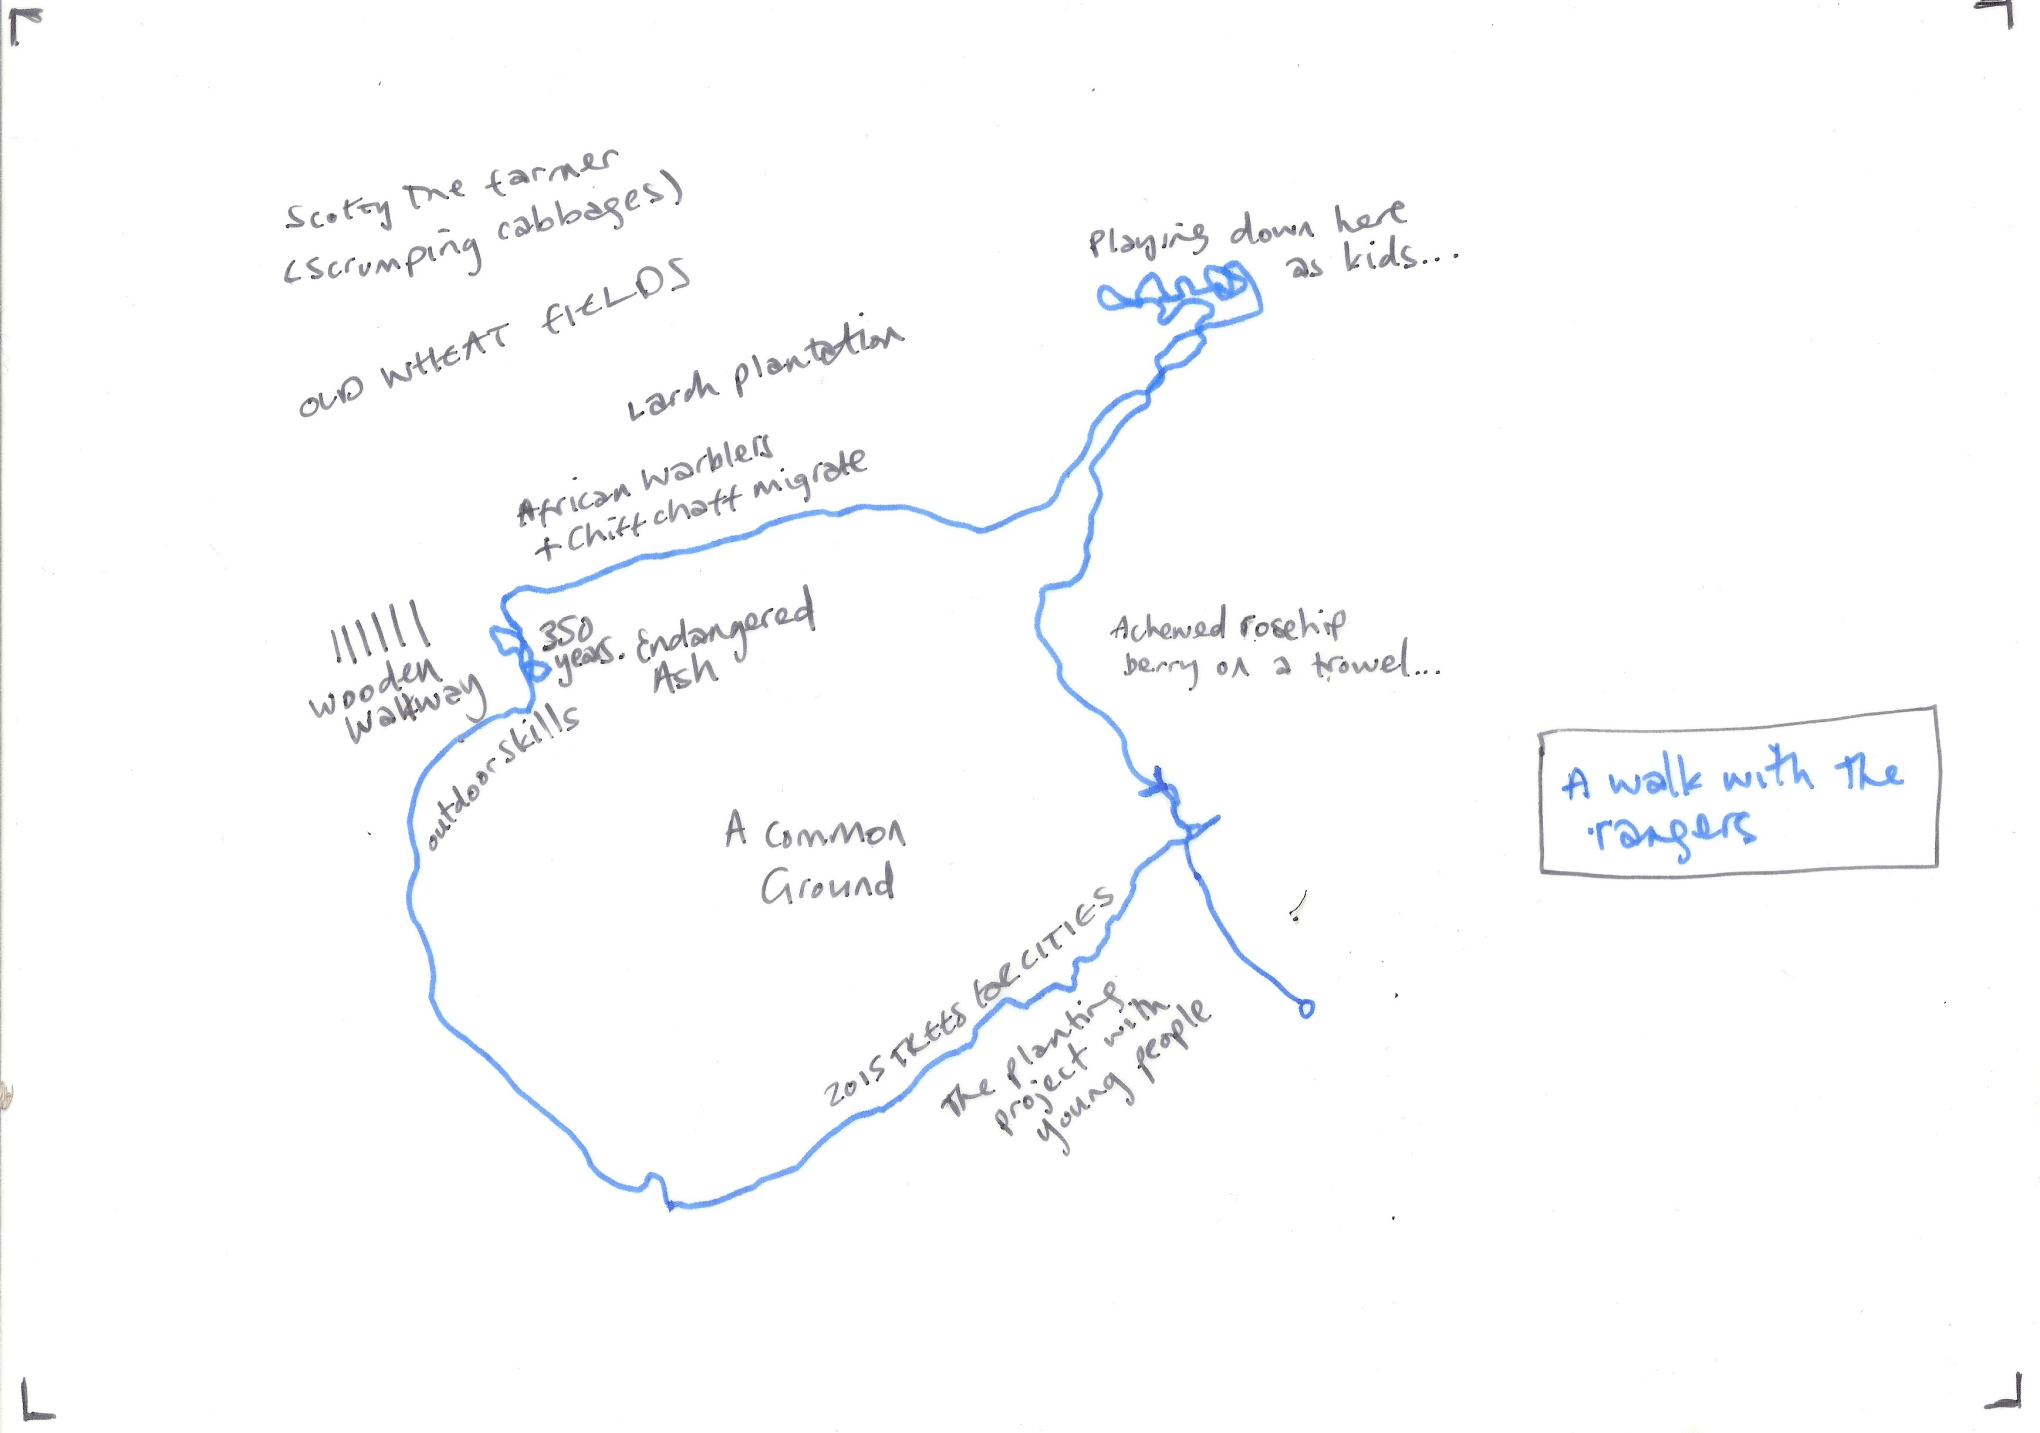 Scotty The farmer
(Scrumping cabbages)
OLD WHEAT FIELDS
Larch plantation
African Warblers
+ Chiffchaff migrate
Playing down here
as kids...
350
years.
Endangered
Ash
Wooden
Walkway
outdoor skills
A chewed rosehip
berry on a trowel...
A walk with the
rangers
A Common
Ground
2015 TREES FOR CITIES
The planting
project with
young people